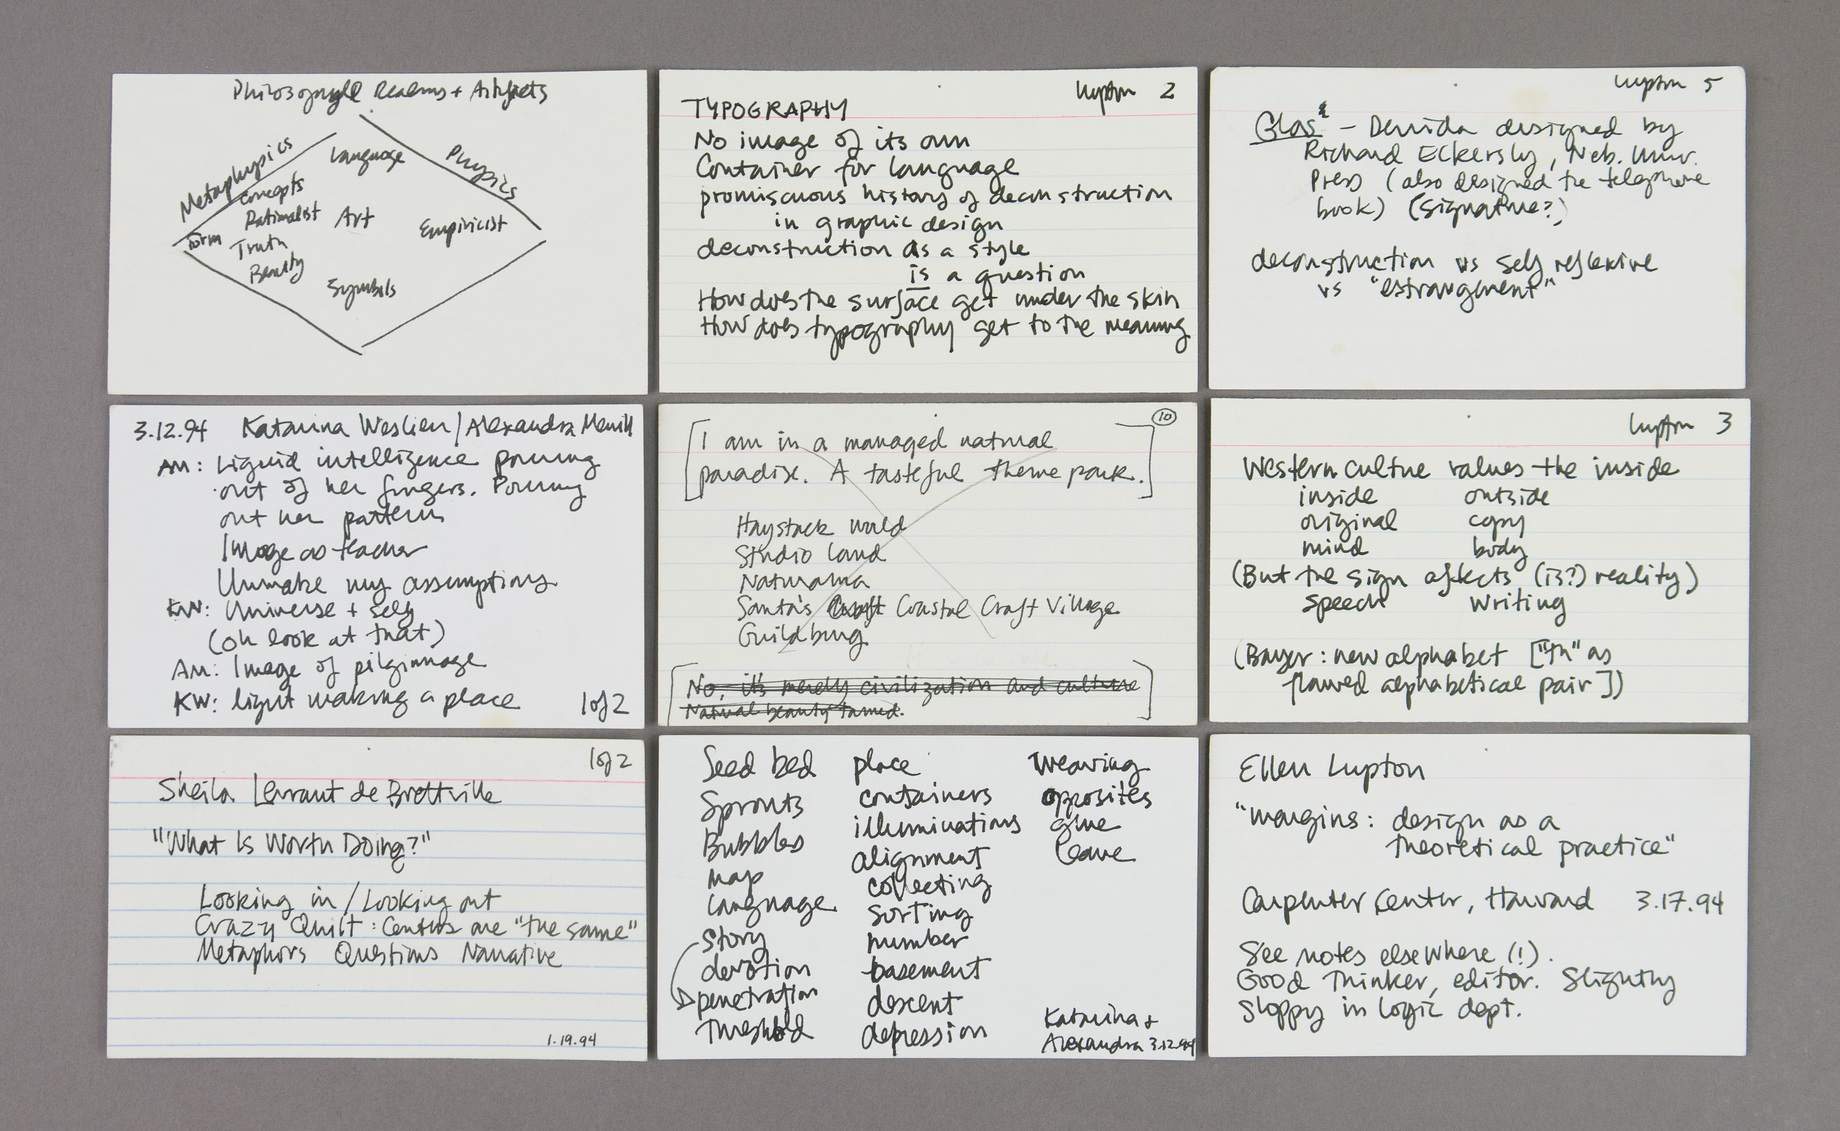 Philosophical Realms + Artifacts
Metaphysics
Language
Physics
concepts
Rationalist
Art
Empiricist
form
Truth
Beauty
Symbols
Lupton 2
TYPOGRAPHY
No image of its own
Container for language
promiscuous history of deconstruction
in graphic design
deconstruction as a style
is a question
How does the surface get under the skin
How does typography get to the meaning
Lupton 5
Glas - Derrida designed by
Richard Eckersly, Neb. Univ.
Press (also designed the telephone
book) (signature?)
deconstruction vs self reflexive
vs "estrangement"
3.12.94 Katarina Weslien/Alexandra Merrill
AM: Liquid intelligence pouring
out of her fingers. Pouring
out her patterns
Image as teacher
Unmake my assumptions
KW: Universe + self
(oh look at that)
AM: Image of pilgrimage
KW: light making a place 1 of 2
10
[I am in a managed natural
paradise. A tasteful theme park.]
Haystack world
Studio land
Naturama
Santa's Coastal Craft Village
Guildburg
[No, it's merely civilization and culture
Natural beauty tamed.]
Lupton 3
Western culture values the inside
inside outside
original copy
mind body
(But the sign affects (is?) reality)
speech writing
(Bayer: new alphabet ["th" as
flawed alphabetical pair])
1 of 2
Sheila Levrant de Brettville
"What Is Worth Doing?"
Looking in / Looking out
Crazy Quilt: Centers are "the same"
Metaphors Questions Narrative
1.19.94
Seed bed place weaving
Sprouts containers opposites
Bubbles illuminations glue
map alignment leave
language collecting
story sorting
devotion number
penetration basement
Threshold descent
depression
Katarina +
Alexandra 3.12.94
Ellen Lupton
"margins: design as a
theoretical practice"
Carpenter Center, Harvard 3.17.94
See notes elsewhere (!).
Good thinker, editor. Slightly
sloppy in logic dept.